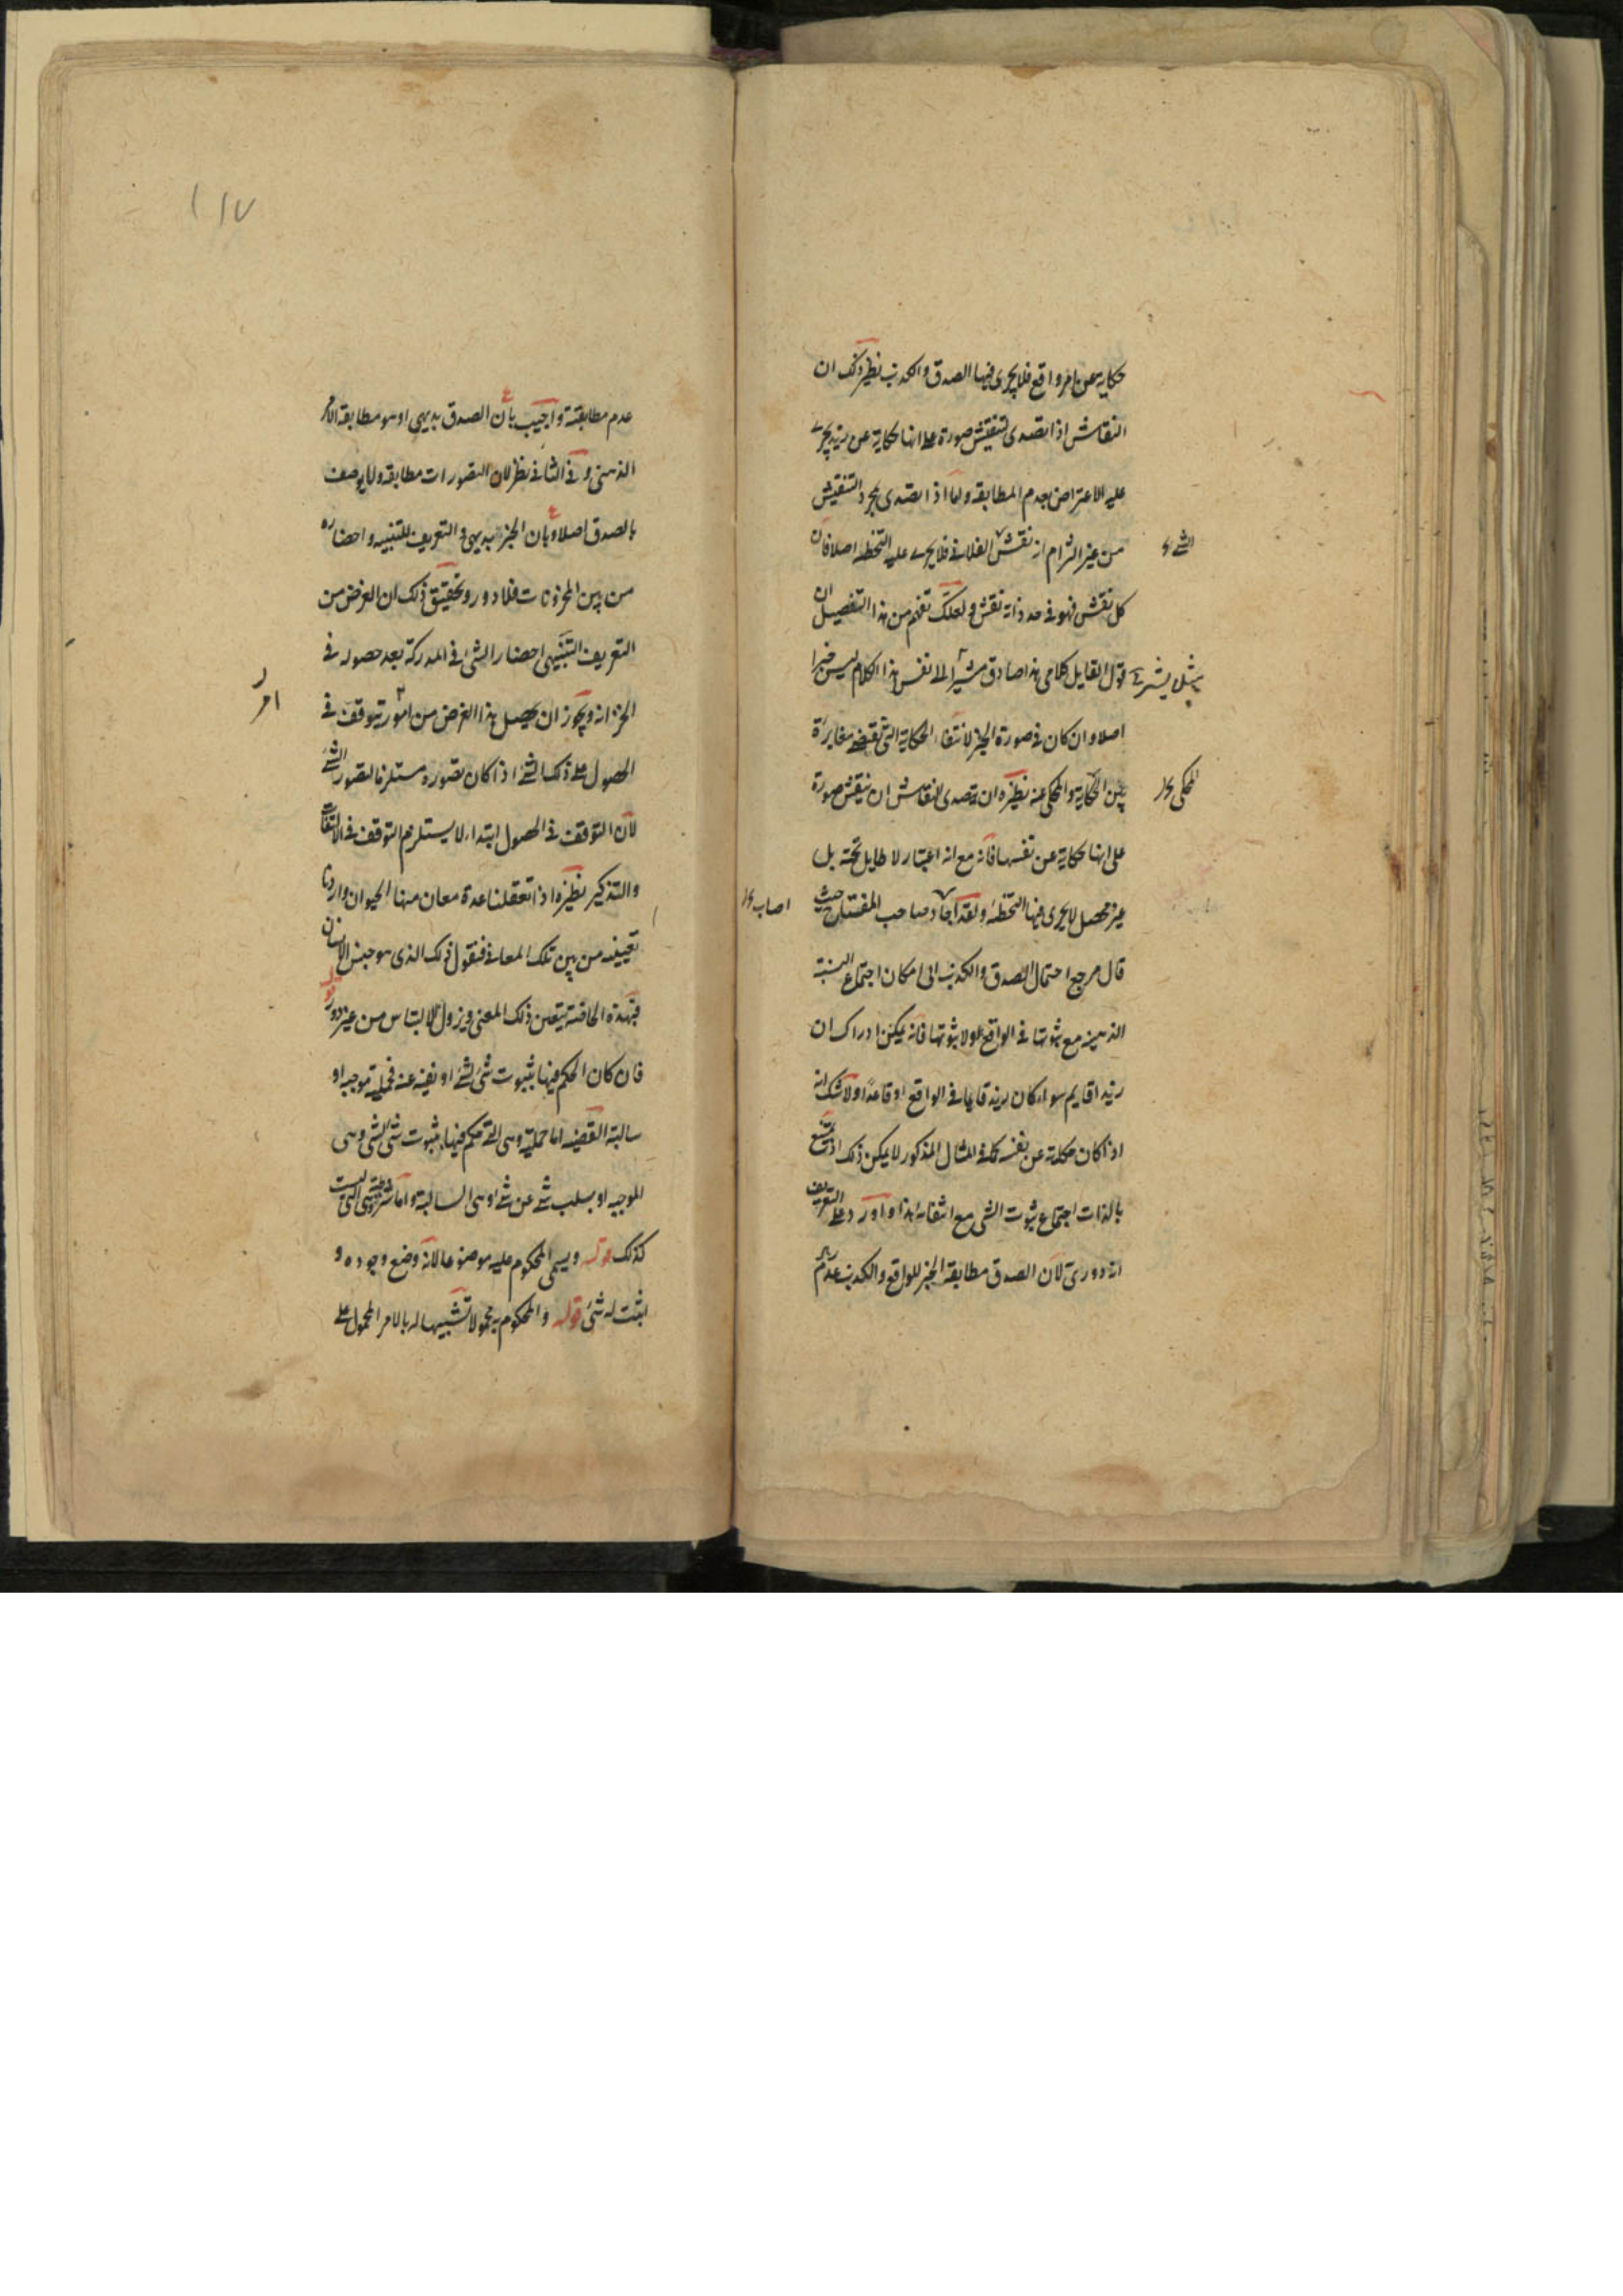 حكاية عن امر واقع فلا يجرى فيها الصدق والكذب نظير ذلك ان
النقاش اذا تصدى لتنقيش صورة على انها حكاية عن زيد يجرى
عليه الاعتراض بعدم المطابقة واما اذا تصدى بمجرد التنقيش
من غير التزام انه نقش الفلانى فلا يجرى عليه التخطئة اصلا فان
الشئ
كل نقش فهو فى حد ذاته نقش ولعلك تفهم من هذا التفصيل ان
قول القايل كلامى هذا صادق مشيرا الى نفس هذا الكلام ليس خبرا
اصلا وان كان فى صورة الخبر لانتفاء الحكاية التى تقتضى مغايرة
بين الحكاية والمحكى عنه نظيره ان يتصدى النقاش ان ينقش صورة
المحكى
على انها حكاية عن نفسها فانه مع انه اعتبار لا طايل تحته بل
غير محصل لا يجرى فيها التخطئة ولقد اجاد صاحب المفتاح حيث
اصاب
قال مرجع احتمال الصدق والكذب الى امكان اجتماع النسبة
الذهنية مع ثبوتها فى الواقع ولا ثبوتها فانه يمكن ادراك ان
زيدا قايم سواء كان زيد قايما فى الواقع او قاعدا ولا شك انه
اذا كان حكاية عن نفسه كما فى المثال المذكور لا يمكن ذلك اذ يمتنع
بالذات اجتماع ثبوت الشى مع انتفائه هذا واورد على التعريف
انه دورى لان الصدق مطابقة الخبر للواقع والكذب عدم
١١٧
عدم مطابقته واجيب بان الصدق بديهى او هو مطابقة الامر
الذهنى وفى الثانى نظر لان التصورات مطابقة ولا يوصف
بالصدق اصلا وبان الخبر بديهى والتعريف للتنبيه واحضاره
من بين المخزونات فلا دور وتحقيق ذلك ان الغرض من
التعريف التنبيهى احضار الشئ فى المدركة بعد حصوله فى
الخزانة ويجوز ان يحصل هذا الغرض من امور يتوقف فى
امر
الحصول على ذلك الشئ اذا كان تصوره مستلزما لتصور الشئ
لان التوقف فى الحصول ابتداء لا يستلزم التوقف فى الالتفات
والتذكير نظيره اذا تعقلنا عدة معان منها الحيوان واردنا
تعيينه من بين تلك المعانى فنقول ذلك الذى هو جنس الانسان
فبهذه يتعين ذلك المعنى ويزول الالتباس من غير دور
فان كان الحكم فيها بثبوت شئ لشئ او نفيه عنه فحملية موجبة او
سالبة القضية اما حملية وهى التى حكم فيها بثبوت شئ لشئ وهى
الموجبة او بسلب شئ عن شئ وهى السالبة واما شرطية وهى التى ليست
كذلك قوله ويسمى المحكوم عليه موضوعا لانه وضع وجوده و
اثبت له شئ قوله والمحكوم به محمولا تشبيها له بالامر المحمول على